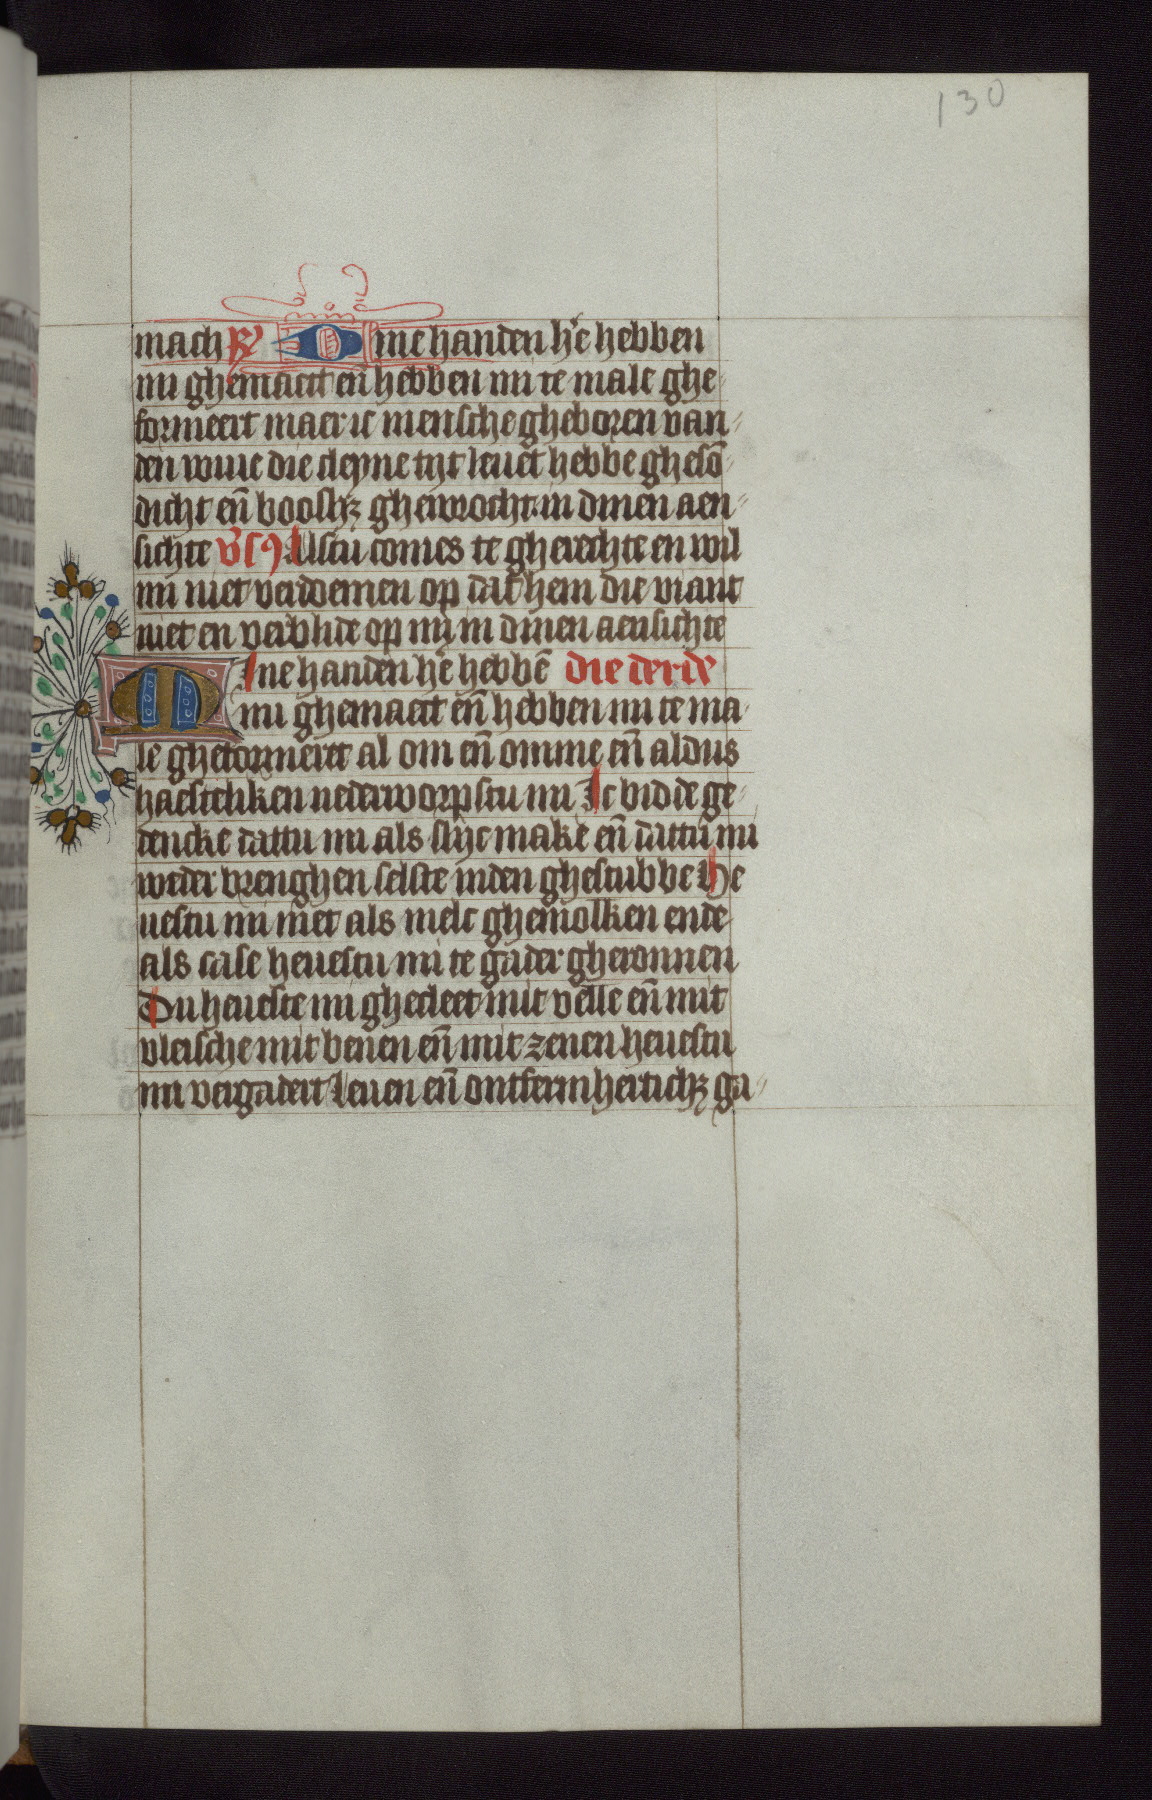 130
mach R Dine handen he hebben
mi ghemaect en̄ hebben mi te male ghe
formeert maer ic mensche gheboren van
den wiue die cleyne tijt leuet hebbe ghesō
dicht en̄ boosh ghewrocht in dinen aen
sichte vs Alstu comes te gherechte en wil
mi niet verdoemen op dat hem die viant
niet en verblide op mi in dinen aensichte
Dine handen he hebbē die derde
mi ghemaect en̄ hebben mi te ma
le gheformeert al om en̄ omme en̄ aldus
haesteliken nederworpstu mi Ic bidde ge
dencke dattu mi als slijc make en̄ dattu mi
weder brenghen selste inden ghestubbe He
uestu mi niet als melc ghemolken ende
als case heuestu mi te gader gheronnen
Du heueste mi ghecleet mit velle en̄ mit
vleische mit benen en̄ mit zenen heuestu
mi vergadert Leuen en̄ ontfermherticħ ga